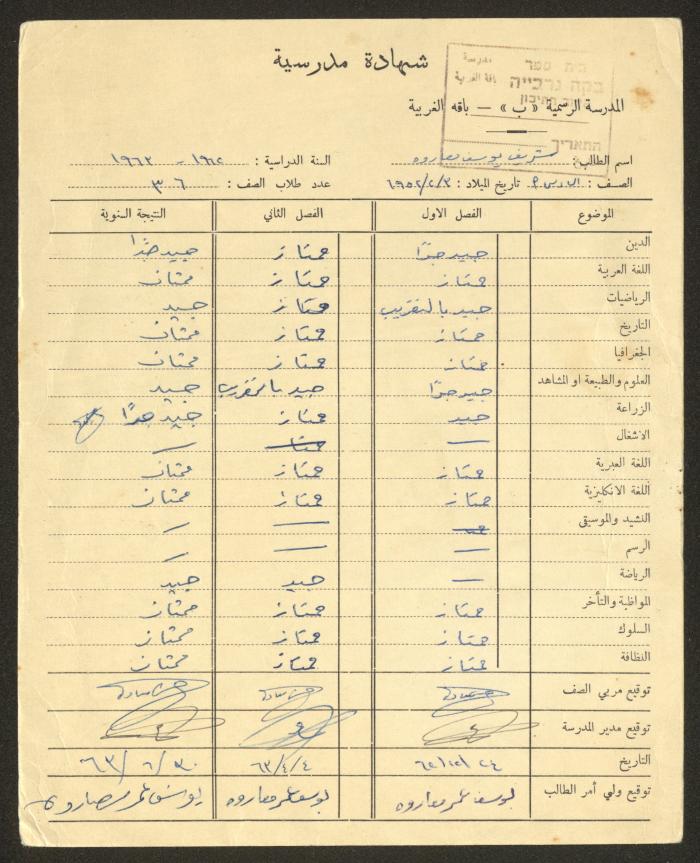 شهادة مدرسية
בית ספר مدرسة
בקה גרבייה باقة الغربية
התאריך
المدرسة الرسمية « ب » — باقه الغربية
اسم الطالب : شريف يوسف معاروه السنة الدراسية : ١٩٦٢ - ١٩٦٣
الصف : السادس تاريخ الميلاد : ١٩٥٢/٢/٣ عدد طلاب الصف : ٣٦
الموضوع الفصل الاول الفصل الثاني النتيجة السنوية
الدين جيد جدًا ممتاز جيد جدًا
اللغة العربية ممتاز ممتاز ممتاز
الرياضيات جيد بالتقريب ممتاز جيد
التاريخ ممتاز ممتاز ممتاز
الجغرافيا ممتاز ممتاز ممتاز
العلوم والطبيعة او المشاهد جيد جدًا جيد بالتقريب جيد
الزراعة جيد ممتاز جيد جدًا
الاشغال — ممتاز —
اللغة العبرية ممتاز ممتاز ممتاز
اللغة الانكليزية ممتاز ممتاز ممتاز
النشيد والموسيقى — —
الرسم — — —
الرياضة — جيد جيد
المواظبة والتأخر ممتاز ممتاز ممتاز
السلوك ممتاز ممتاز ممتاز
النظافة ممتاز ممتاز ممتاز
توقيع مربي الصف
توقيع مدير المدرسة
التاريخ ٢٤/١٢/٦٢ ٤/٤/٦٣ ٣٠/٦/٦٣
توقيع ولي أمر الطالب يوسف عمر معاروه يوسف عمر معاروه يوسف عمر معاروه